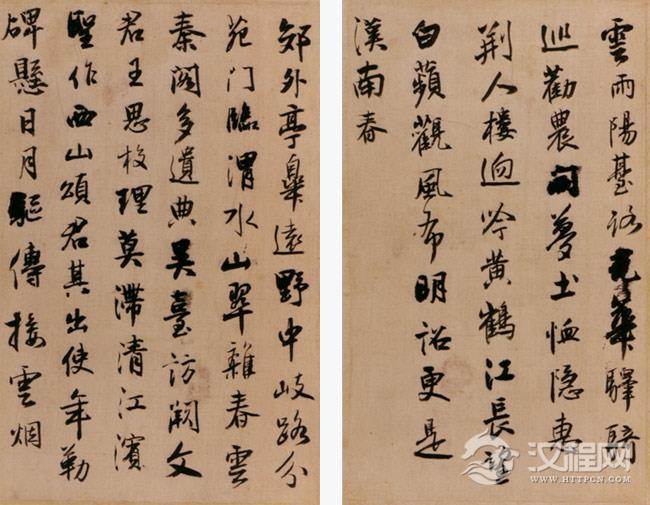 雲雨陽臺路光華驛騎
巡勸農開夢土恤隐惠
荆人楼迥吟黄鶴江長望
白蘋觀風布明诏更是
漢南春
郊外亭皋遠野中岐路分
苑门臨渭水山翠雜春雲
秦閣多遺典吴臺訪闕文
君王思校理莫滯清江濱
聖作西山頌君其出使年勒
碑懸日月驅傳接雲烟
汉程网
WWW.HTTPCN.COM